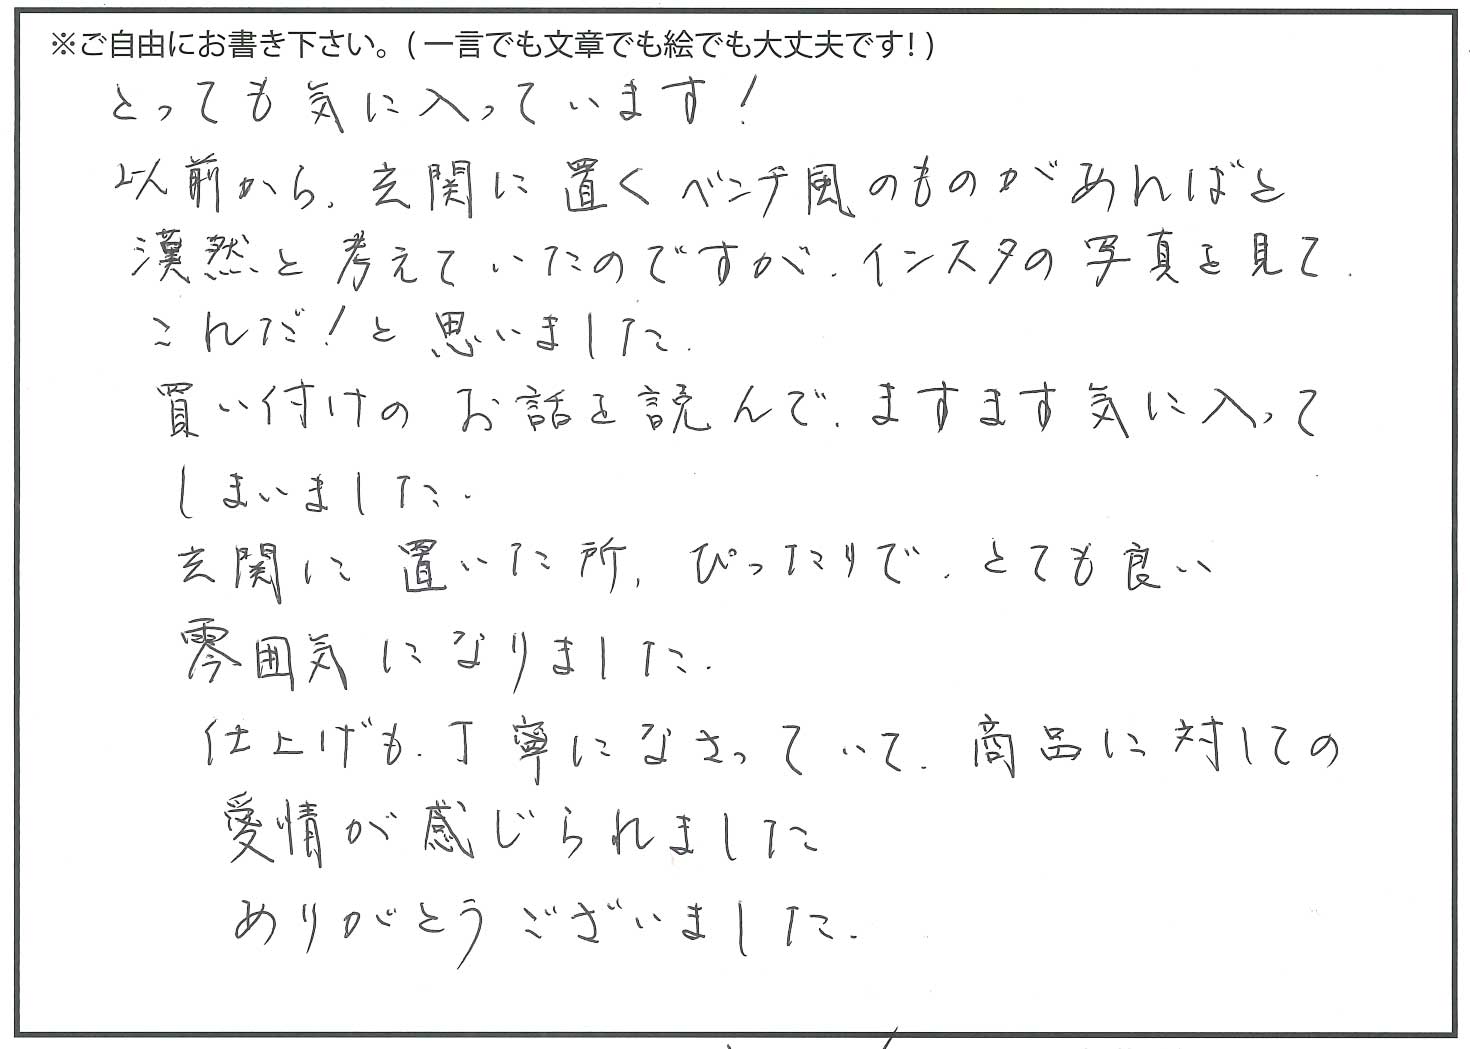 ※ご自由にお書き下さい。(一言でも文章でも絵でも大丈夫です!)
とっても気に入っています!
以前から、玄関に置くベンチ風のものがあればと
漠然と考えていたのですが、インスタの写真を見て、
これだ!と思いました。
買い付けのお話を読んで、ますます気に入って
しまいました。
玄関に置いた所、ぴったりで、とても良い
雰囲気になりました。
仕上げも、丁寧になさっていて、商品に対しての
愛情が感じられました
ありがとうございました。